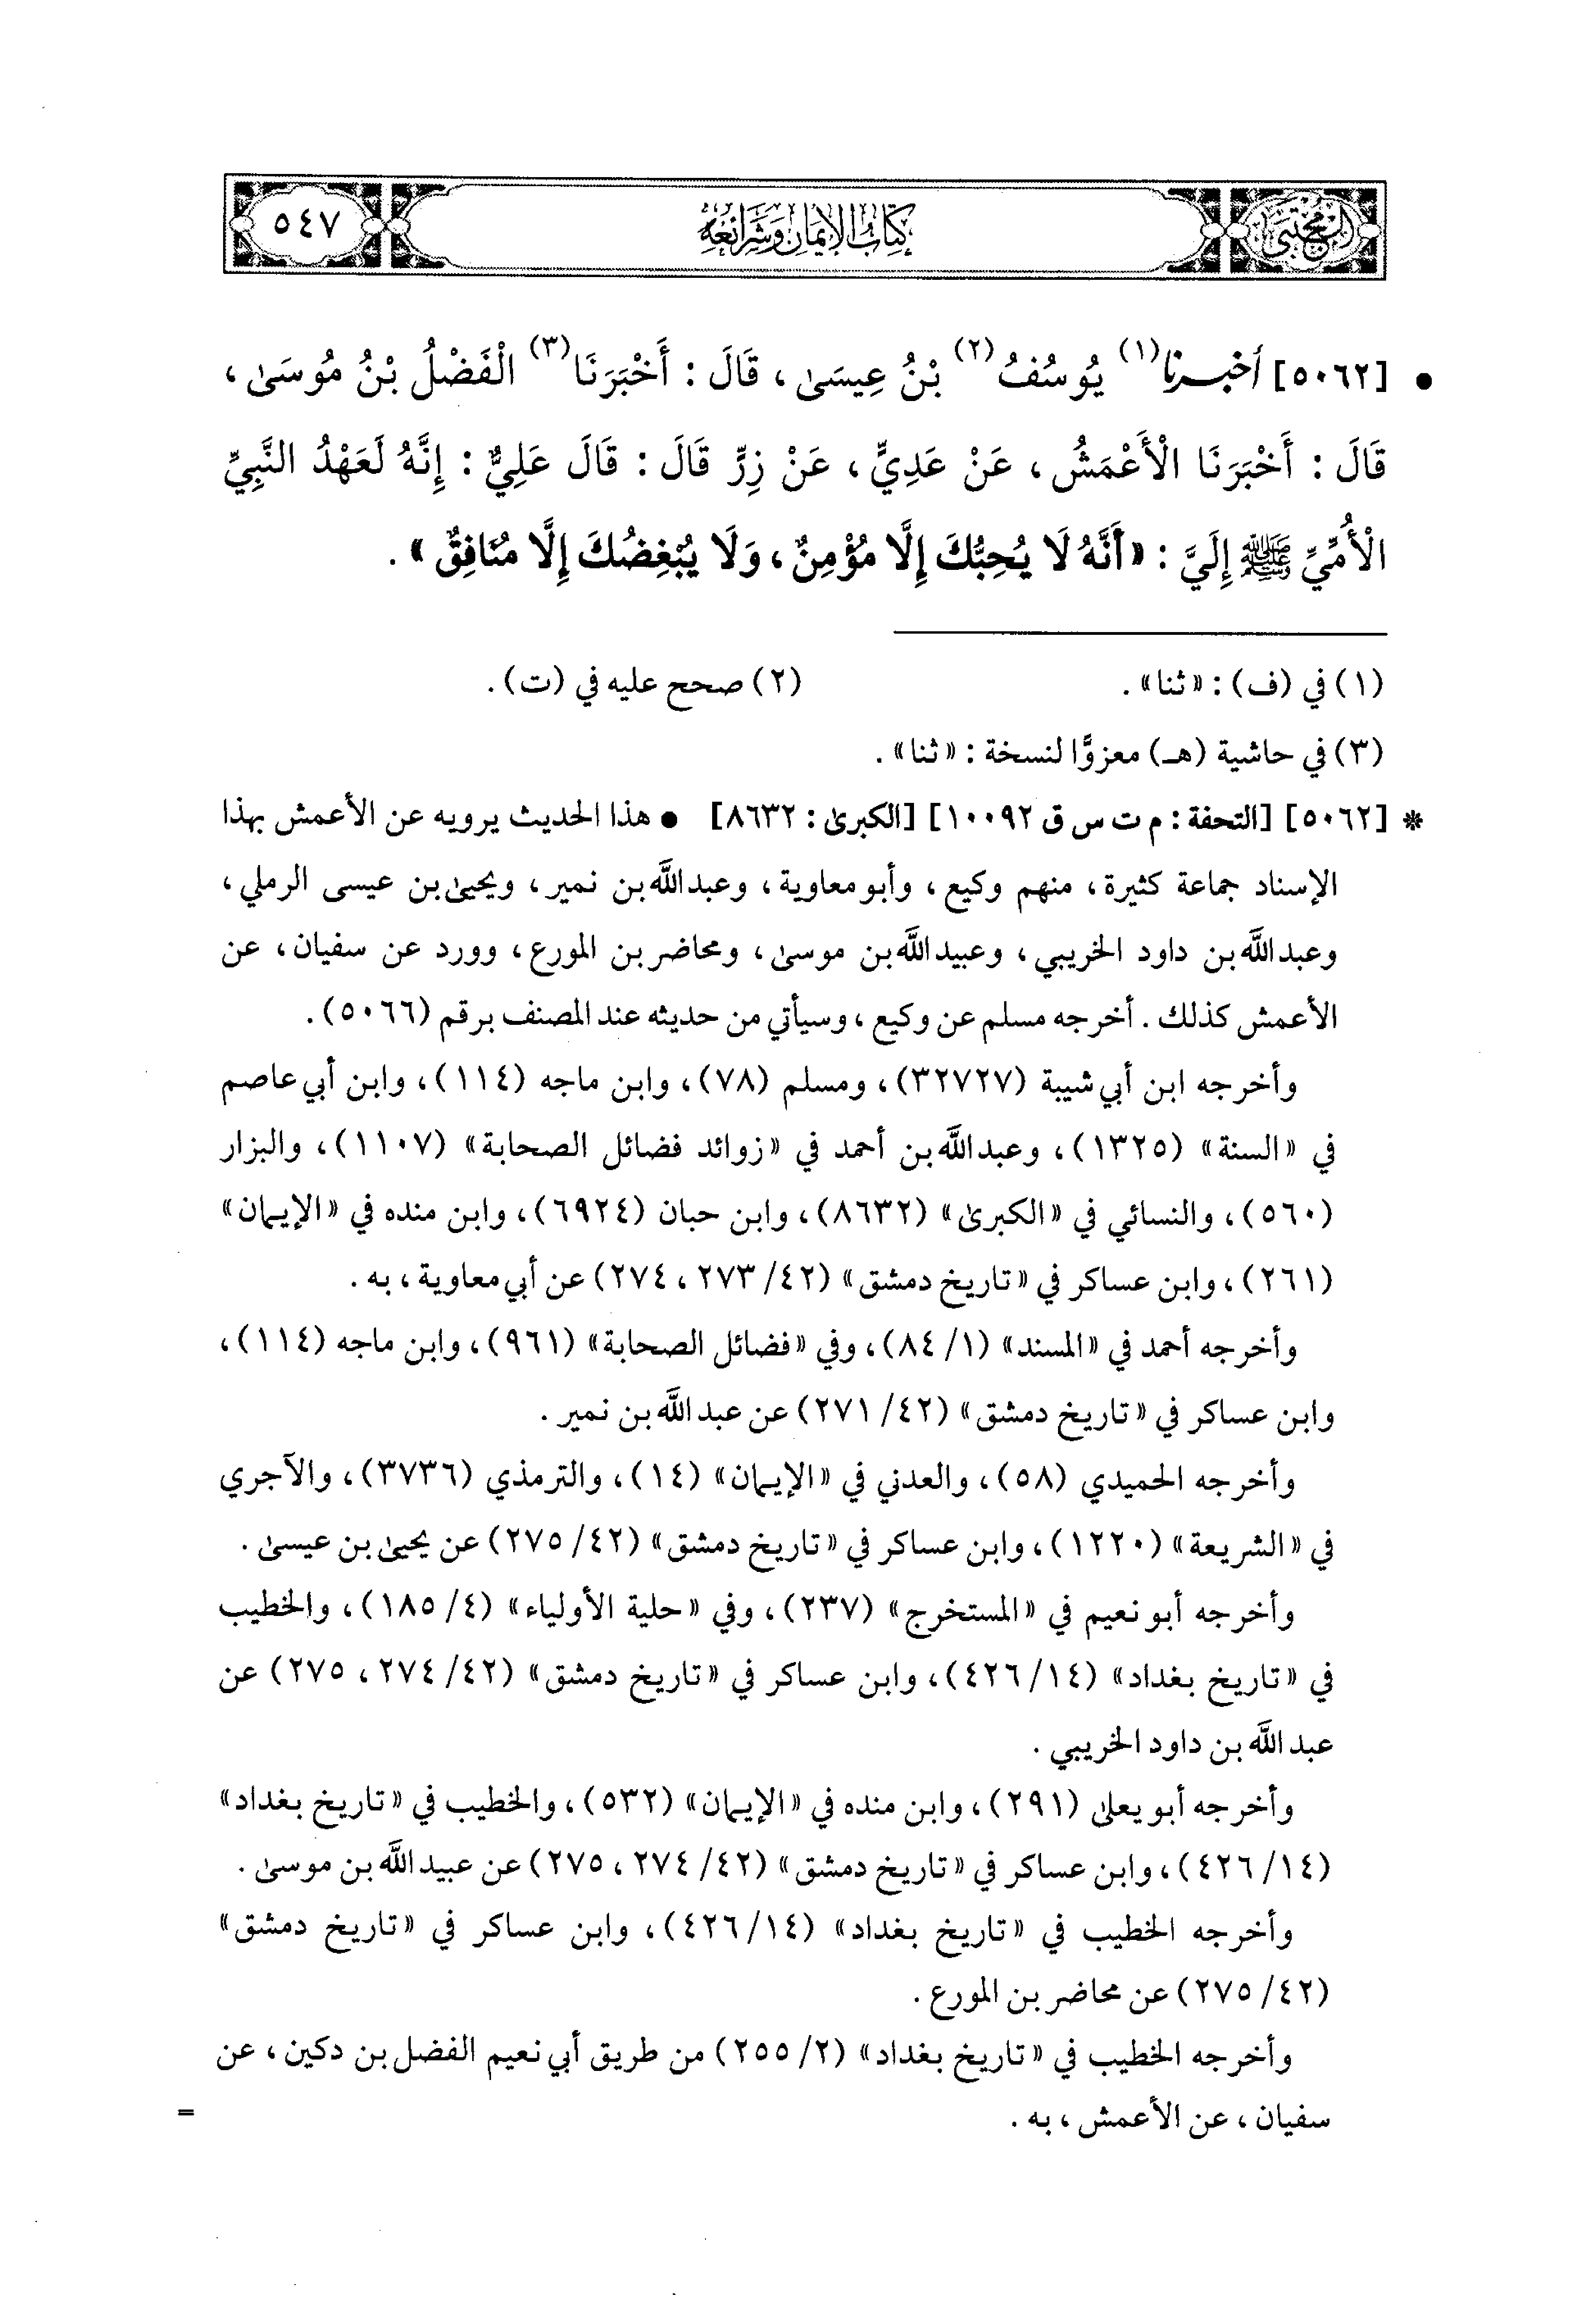 المجتبى
كتاب الإيمان وشرائعه
٥٤٧
• [٥٠٦٢] أخبرنا(١) يُوسُفُ(٢) بْنُ عِيسَىٰ، قَالَ : أَخْبَرَنَا(٣) الْفَضْلُ بْنُ مُوسَىٰ،
قَالَ : أَخْبَرَنَا الْأَعْمَشُ، عَنْ عَدِيٍّ، عَنْ زِرٍّ قَالَ : قَالَ عَلِيٌّ : إِنَّهُ لَعَهْدُ النَّبِيِّ
الْأُمِّيِّ ﷺ إِلَيَّ : «أَنَّهُ لَا يُحِبُّكَ إِلَّا مُؤْمِنٌ، وَلَا يُبْغِضُكَ إِلَّا مُنَافِقٌ» .
(١) في (ف) : «ثنا» . (٢) صحح عليه في (ت) .
(٣) في حاشية (هـ) معزوًّا لنسخة : «ثنا» .
* [٥٠٦٢] [التحفة : م ت س ق ١٠٠٩٢] [الكبرىٰ : ٨٦٣٢] • هذا الحديث يرويه عن الأعمش بهذا
الإسناد جماعة كثيرة، منهم وكيع، وأبو معاوية، وعبد اللَّه بن نمير، ويحيىٰ بن عيسى الرملي،
وعبد اللَّه بن داود الخريبي، وعبيد اللَّه بن موسىٰ، ومحاضر بن المورع، وورد عن سفيان، عن
الأعمش كذلك . أخرجه مسلم عن وكيع، وسيأتي من حديثه عند المصنف برقم (٥٠٦٦) .
وأخرجه ابن أبي شيبة (٣٢٧٢٧)، ومسلم (٧٨)، وابن ماجه (١١٤)، وابن أبي عاصم
في «السنة» (١٣٢٥)، وعبد اللَّه بن أحمد في «زوائد فضائل الصحابة» (١١٠٧)، والبزار
(٥٦٠)، والنسائي في «الكبرىٰ» (٨٦٣٢)، وابن حبان (٦٩٢٤)، وابن منده في «الإيمان»
(٢٦١)، وابن عساكر في «تاريخ دمشق» (٤٢/ ٢٧٣، ٢٧٤) عن أبي معاوية، به .
وأخرجه أحمد في «المسند» (١/ ٨٤)، وفي «فضائل الصحابة» (٩٦١)، وابن ماجه (١١٤)،
وابن عساكر في «تاريخ دمشق» (٤٢/ ٢٧١) عن عبد اللَّه بن نمير .
وأخرجه الحميدي (٥٨)، والعدني في «الإيمان» (١٤)، والترمذي (٣٧٣٦)، والآجري
في «الشريعة» (١٢٢٠)، وابن عساكر في «تاريخ دمشق» (٤٢/ ٢٧٥) عن يحيىٰ بن عيسىٰ .
وأخرجه أبو نعيم في «المستخرج» (٢٣٧)، وفي «حلية الأولياء» (٤/ ١٨٥)، والخطيب
في «تاريخ بغداد» (١٤/ ٤٢٦)، وابن عساكر في «تاريخ دمشق» (٤٢/ ٢٧٤، ٢٧٥) عن
عبد اللَّه بن داود الخريبي .
وأخرجه أبو يعلىٰ (٢٩١)، وابن منده في «الإيمان» (٥٣٢)، والخطيب في «تاريخ بغداد»
(١٤/ ٤٢٦)، وابن عساكر في «تاريخ دمشق» (٤٢/ ٢٧٤، ٢٧٥) عن عبيد اللَّه بن موسىٰ .
وأخرجه الخطيب في «تاريخ بغداد» (١٤/ ٤٢٦)، وابن عساكر في «تاريخ دمشق»
(٤٢/ ٢٧٥) عن محاضر بن المورع .
وأخرجه الخطيب في «تاريخ بغداد» (٢/ ٢٥٥) من طريق أبي نعيم الفضل بن دكين، عن
سفيان، عن الأعمش، به . =